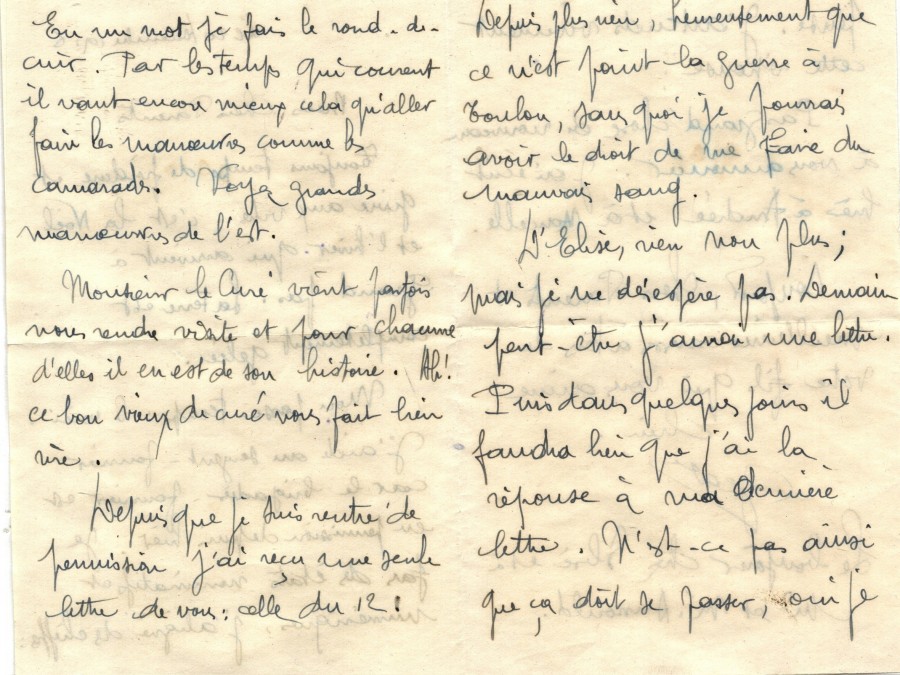 En un mot je fais le rond-de-
cuir. Par les temps qui courent
il vaut encore mieux cela qu'aller
faire les manœuvres comme les
camarades. Voyez grandes
manœuvres de l'est.
Monsieur le Curé vient parfois
nous rendre visite et pour chacune
d'elles il en est de son histoire. Ah!
ce bon vieux de curé nous fait bien
rire.
Depuis que je suis rentré de
permission j'ai reçu une seule
lettre de vous: celle du 12.
Depuis plus rien, heureusement que
ce n'est point la guerre à
Toulon, sans quoi je pourrais
avoir le droit de me faire du
mauvais sang.
D'Elise, rien non plus;
mais je ne désespère pas. Demain
peut-être j'aurai une lettre.
Puis dans quelques jours il
faudra bien que j'ai la
réponse à ma dernière
lettre. N'est-ce pas ainsi
que ça doit se passer, oui je